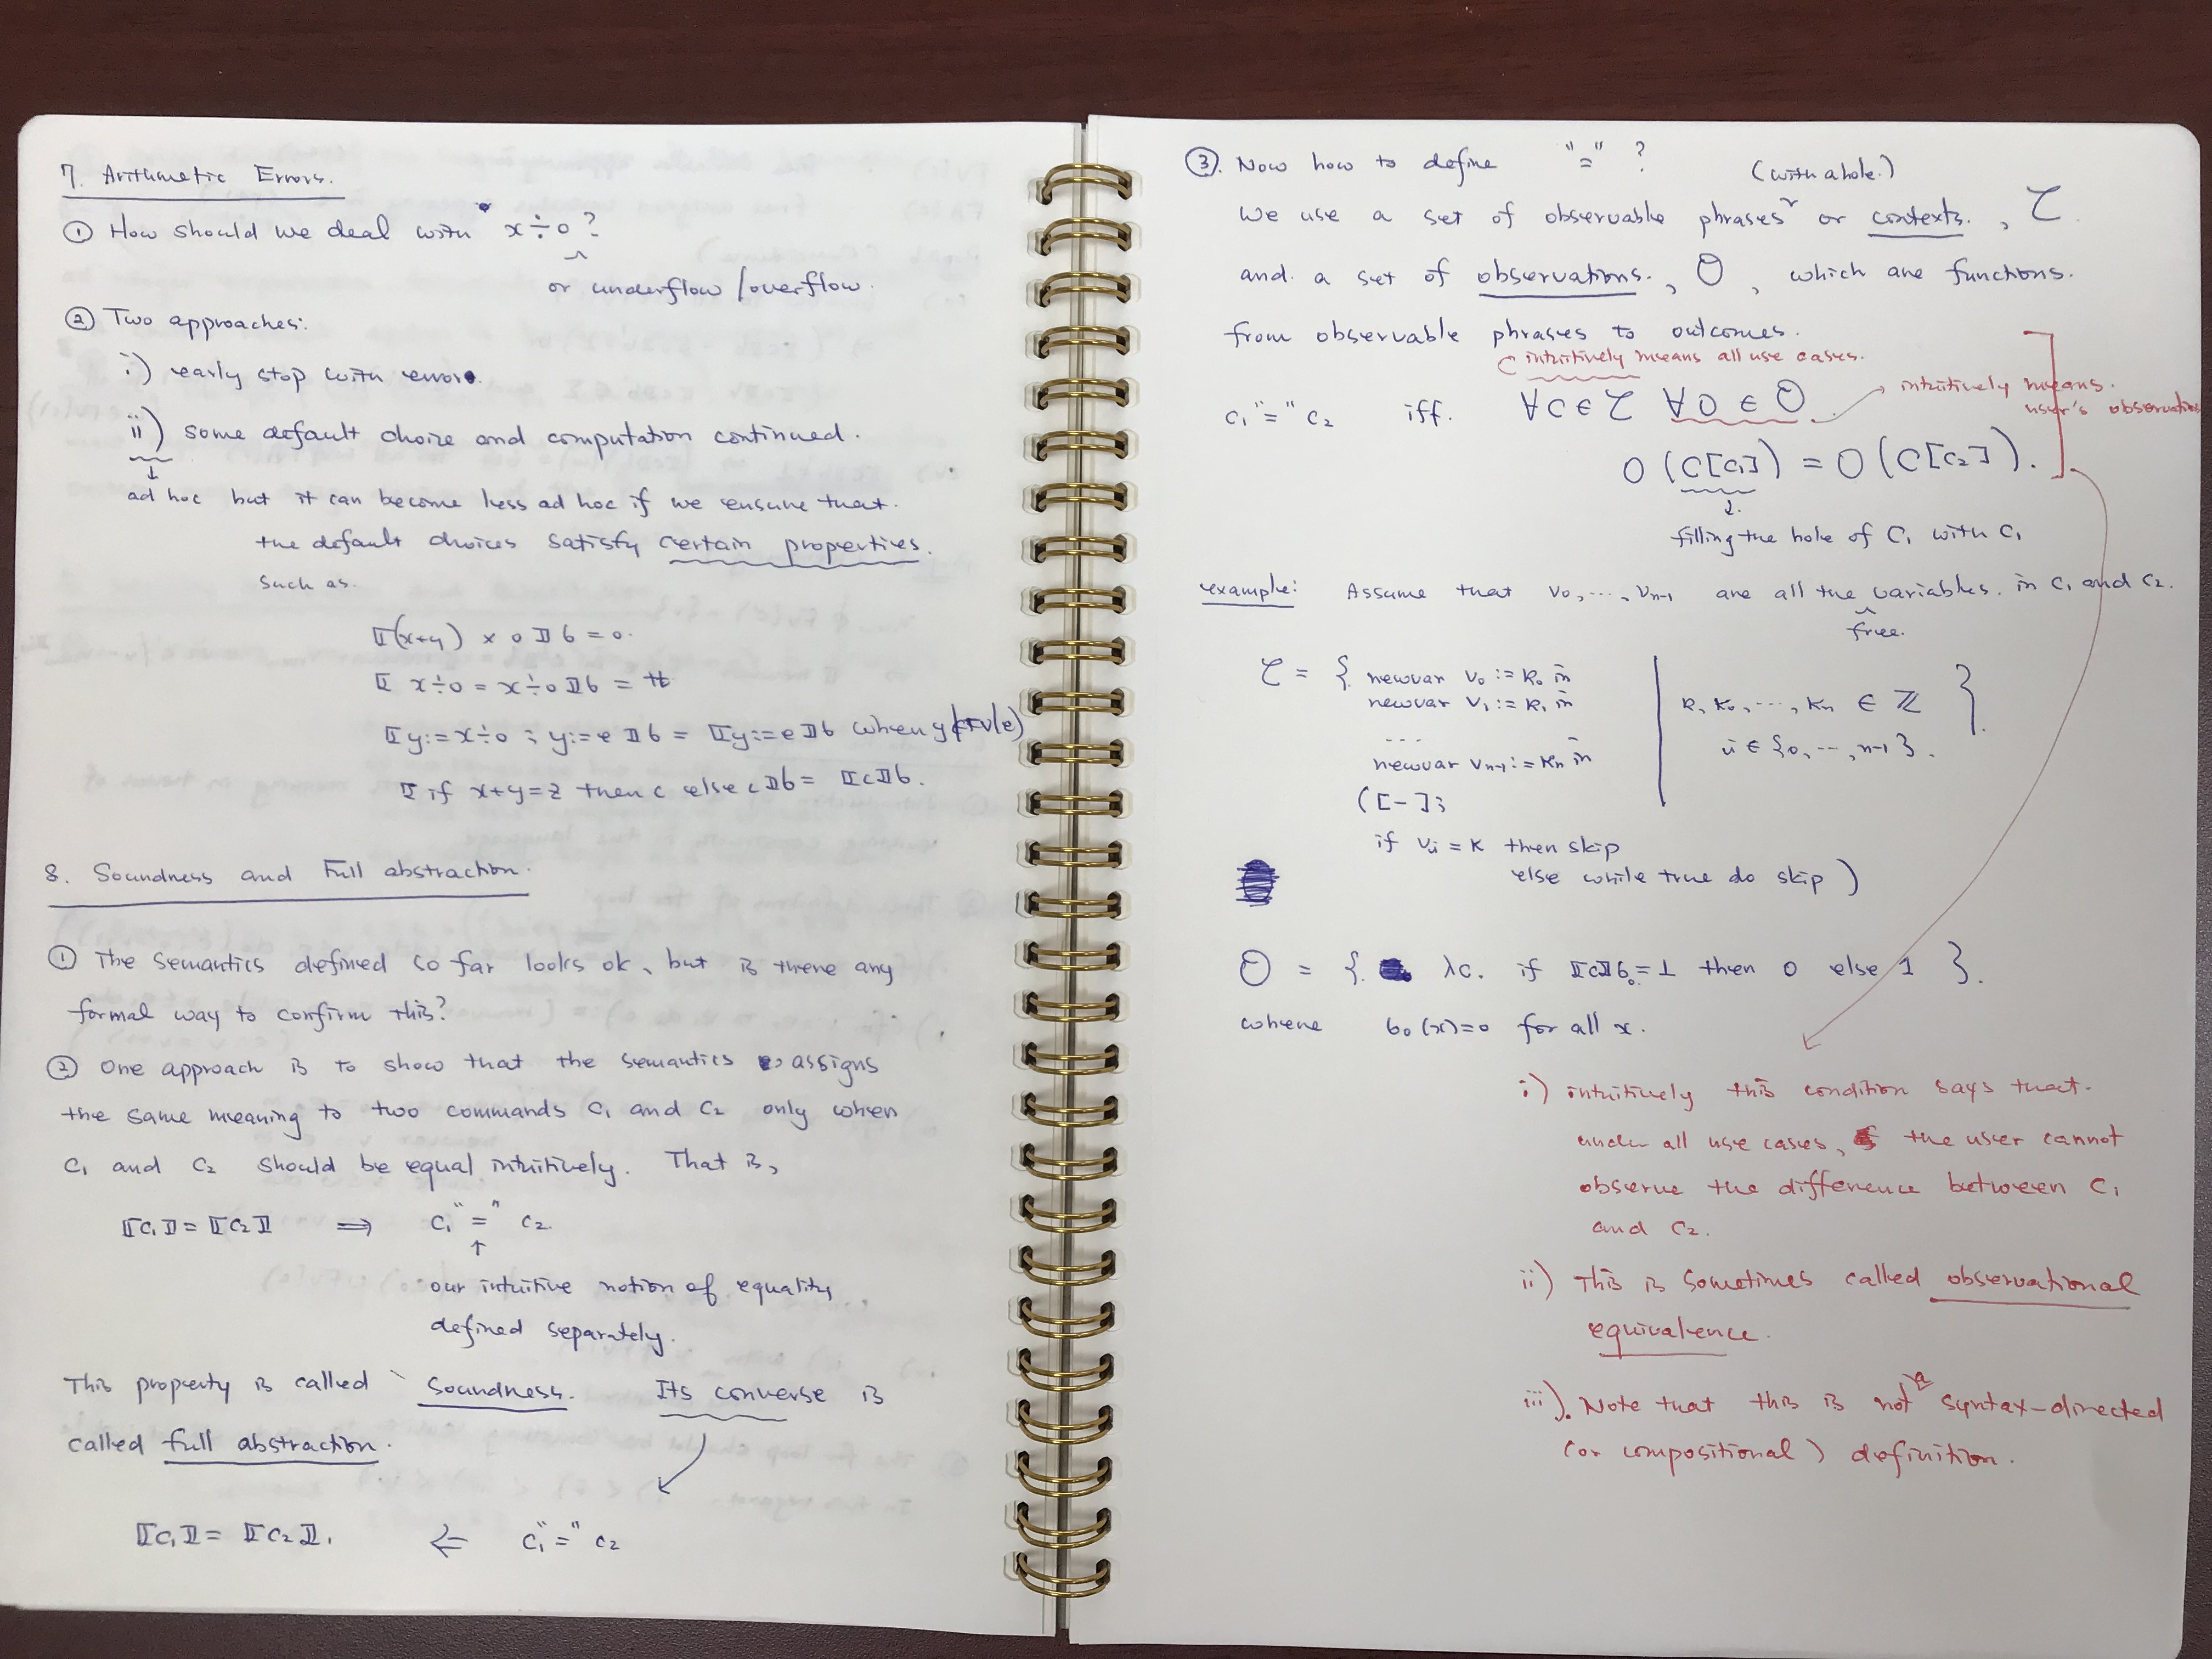 7. Arithmetic Errors.
① How should we deal with x÷0 ?
or underflow / overflow.
② Two approaches:
i) early stop with error.
ii) some default choice and computation continued.
↓
ad hoc but it can become less ad hoc if we ensure that.
the default choices satisfy certain properties.
such as.
⟦(x+y) × 0⟧σ = 0.
⟦x÷0 = x÷0⟧σ = tt
⟦y:=x÷0 ; y:=e⟧σ = ⟦y:=e⟧σ when y∉FV(e)
⟦if x+y=z then c else c⟧σ = ⟦c⟧σ.
8. Soundness and Full abstraction.
① The semantics defined so far looks ok, but is there any
formal way to confirm this?
② One approach is to show that the semantics assigns
the same meaning to two commands c₁ and c₂ only when
c₁ and c₂ should be equal intuitively. That is,
⟦c₁⟧ = ⟦c₂⟧ ⟹ c₁ "=" c₂.
↑
our intuitive notion of equality
defined separately.
This property is called soundness. Its converse is
called full abstraction.
⟦c₁⟧ = ⟦c₂⟧. ⟸ c₁ "=" c₂
③. Now how to define "=" ?
(with a hole.)
We use a set of observable phrases or contexts. , 𝒞.
and a set of observations. , 𝒪 , which are functions.
from observable phrases to outcomes.
intuitively means all use cases.
intuitively means.
user's observation
c₁ "=" c₂ iff. ∀C∈𝒞 ∀O∈𝒪.
O(C[c₁]) = O(C[c₂]).
↓
filling the hole of C, with c₁
example: Assume that v₀, ..., vₙ₋₁ are all the variables. in c₁ and c₂.
free.
𝒞 = { newvar v₀ := k₀ in
newvar v₁ := k₁ in
...
newvar vₙ₋₁ := kₙ in
([-];
if vᵢ = k then skip
else while true do skip )
| k, k₀, ..., kₙ ∈ ℤ
i ∈ {0, ..., n-1}. }
𝒪 = { λc. if ⟦c⟧σ₀ = ⊥ then 0 else 1 }.
where σ₀(x)=0 for all x.
i) intuitively this condition says that.
under all use cases, the user cannot
observe the difference between c₁
and c₂.
ii) This is sometimes called observational
equivalence.
iii). Note that this is not a syntax-directed
(or compositional) definition.